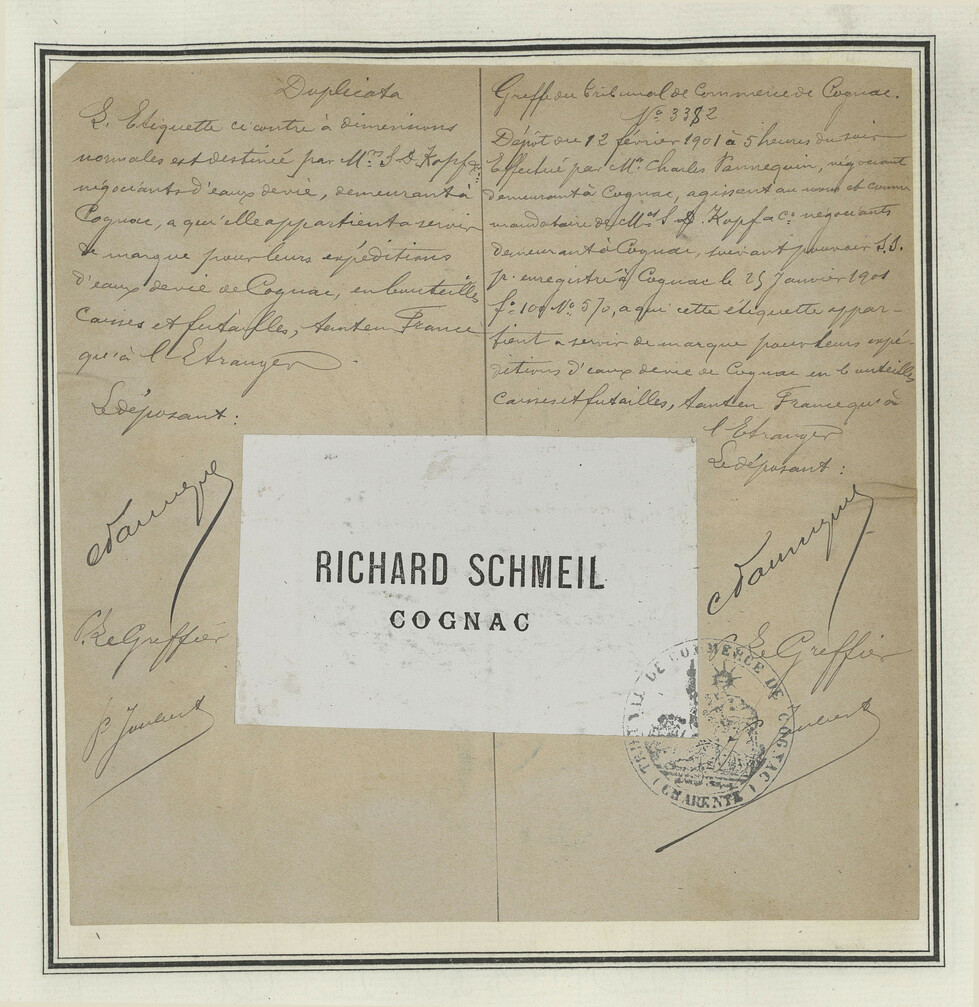 Duplicata
L'Etiquette ci contre à dimensions
normales est destinée par Mrs S. D. Kopf & Co
négociants d'eaux de vie, demeurant à
Cognac, a qu'elle appartient a servir
de marque pour leurs expéditions
d'eaux de vie de Cognac, en bouteilles
caisses et futailles, tant en France
qu'à l'Etranger.
Le déposant:
P. Le Greffier
Greffe du Tribunal de Commerce de Cognac.
No 3382
Dépôt du 12 février 1901 à 5 heures du soir
Effectué par Mr Charles Vannequin, négociant
demeurant à Cognac, agissant au nom et comme
mandataire de Mrs S. D. Kopf & Co négociants
demeurant à Cognac, suivant pouvoir S.S.
p. enregistré à Cognac le 25 Janvier 1901
fo 100 No 570, a qui cette étiquette appar-
tient a servir de marque pour leurs expé-
ditions d'eaux de vie de Cognac en bouteilles
caisses et futailles, tant en France qu'à
l'Etranger
Le déposant:
Le Greffier
RICHARD SCHMEIL
COGNAC
TRIBUNAL DE COMMERCE DE COGNAC
(CHARENTE)